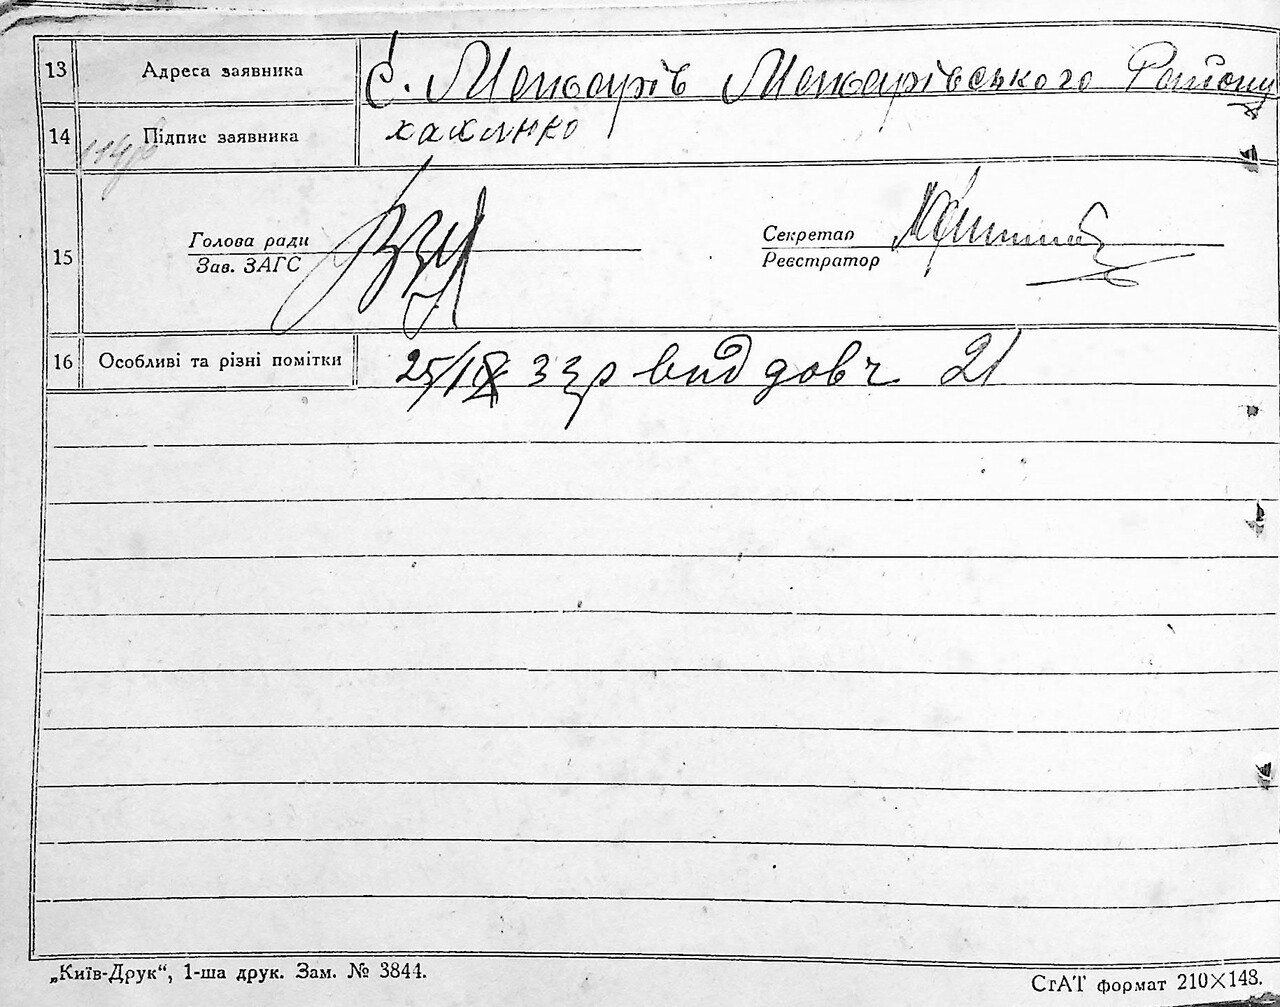 13 Адреса заявника с. Макарів Макарівського Району
14 Підпис заявника
15 Голова ради
Зав. ЗАГС
Секретар
Реєстратор
16 Особливі та різні помітки 25/IX 33р вид довч 21
„Київ-Друк“, 1-ша друк. Зам. № 3844.
СгАТ формат 210×148.